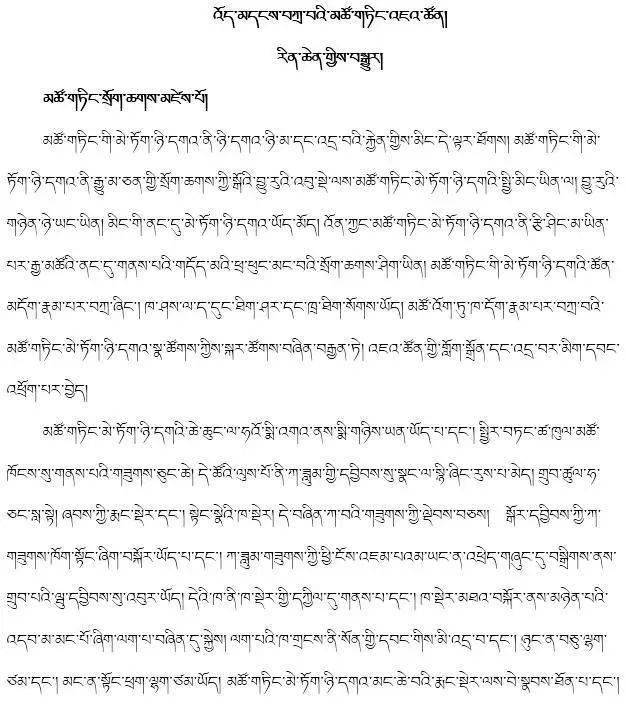 འོད་མདངས་བཀྲ་བའི་མཚོ་གཏིང་འཇའ་ཚོན།
རིན་ཆེན་གྱིས་བསྒྱུར།
མཚོ་གཏིང་སྲོག་ཆགས་མཛེས་པོ།
མཚོ་གཏིང་གི་མེ་ཏོག་ཉི་དགའ་ནི་ཉི་དགའ་ཉི་མ་དང་འདྲ་བའི་རྐྱེན་གྱིས་མིང་དེ་ལྟར་ཐོགས། མཚོ་གཏིང་གི་མེ་
ཏོག་ཉི་དགའ་ནི་རྒྱུ་མ་ཅན་གྱི་སྲོག་ཆགས་ཀྱི་སྒོའི་བྱུ་རུའི་འབུ་སྡེ་ལས་མཚོ་གཏིང་མེ་ཏོག་ཉི་དགའི་སྤྱི་མིང་ཡིན་ལ། བྱུ་རུའི་
གཉེན་ཉེ་ཡང་ཡིན། མིང་གི་ནང་དུ་མེ་ཏོག་ཉི་དགའ་ཡོད་མོད། འོན་ཀྱང་མཚོ་གཏིང་མེ་ཏོག་ཉི་དགའ་ནི་རྩི་ཤིང་མ་ཡིན་
པར་རྒྱ་མཚོའི་ནང་དུ་གནས་པའི་གདོད་མའི་ཕྲ་ཕུང་མང་བའི་སྲོག་ཆགས་ཤིག་ཡིན། མཚོ་གཏིང་གི་མེ་ཏོག་ཉི་དགའི་ཚོན་
མདོག་རྣམ་པར་བཀྲ་ཞིང་། ཁ་ཤས་ལ་ད་དུང་ཐིག་ཤར་དང་ཁྲ་ཐིག་སོགས་ཡོད། མཚོ་འོག་ཏུ་ཁ་དོག་རྣམ་པར་བཀྲ་བའི་
མཚོ་གཏིང་མེ་ཏོག་ཉི་དགའ་སྣ་ཚོགས་ཀྱིས་སྐར་ཚོགས་བཞིན་བརྒྱན་ཏེ། འཇའ་ཚོན་གྱི་གློག་སྒྲོན་དང་འདྲ་བར་མིག་དབང་
འཕྲོག་པར་བྱེད།
མཚོ་གཏིང་མེ་ཏོག་ཉི་དགའི་ཆེ་ཆུང་ལ་ཧའོ་སྨི་འགའ་ནས་སྨི་གཉིས་ཡན་ཡོད་པ་དང་། སྤྱིར་བཏང་ཚ་ཁུལ་མཚོ་
ཁོངས་སུ་གནས་པའི་གཟུགས་ཆུང་ཆེ། དེ་ཚོའི་ལུས་པོ་ནི་ཀ་ཟླུམ་གྱི་དབྱིབས་སུ་སྣང་ལ་སྙི་ཞིང་རུས་པ་མེད། གྲུབ་ཚུལ་ཧ་
ཅང་སླ་སྟེ། ཞབས་ཀྱི་རྨང་སྡེར་དང་། སྟེང་སྣེའི་ཁ་སྡེར། དེ་བཞིན་ཀ་བའི་གཟུགས་ཀྱི་ལྡེབས་བཅས། སྒོར་དབྱིབས་ཀྱི་ཀ་
གཟུགས་ཁོག་སྟོང་ཞིག་བསྐོར་ཡོད་པ་དང་། ཀ་ཟླུམ་གཟུགས་ཀྱི་ཕྱི་ངོས་འཇམ་པའམ་ཡང་ན་འཕྲེད་གཞུང་དུ་བསྒྲིགས་ནས་
གྲུབ་པའི་ལྦུ་དབྱིབས་སུ་འབུར་ཡོད། དེའི་ཁ་ནི་ཁ་སྡེར་གྱི་དཀྱིལ་དུ་གནས་པ་དང་། ཁ་སྡེར་མཐའ་བསྐོར་ནས་མཉེན་པའི་
འདབ་མ་མང་པོ་ཞིག་ལག་པ་བཞིན་དུ་སྐྱེས། ལག་པའི་ཁ་གྲངས་ནི་སོན་གྱི་དབང་གིས་མི་འདྲ་བ་དང་། ཉུང་ན་བཅུ་ལྷག་
ཙམ་དང་། མང་ན་སྟོང་ཕྲག་ལྷག་ཙམ་ཡོད། མཚོ་གཏིང་མེ་ཏོག་ཉི་དགའ་མང་ཆེ་བའི་རྨང་སྡེར་ལས་བེ་སྣབས་ཐོན་པ་དང་།